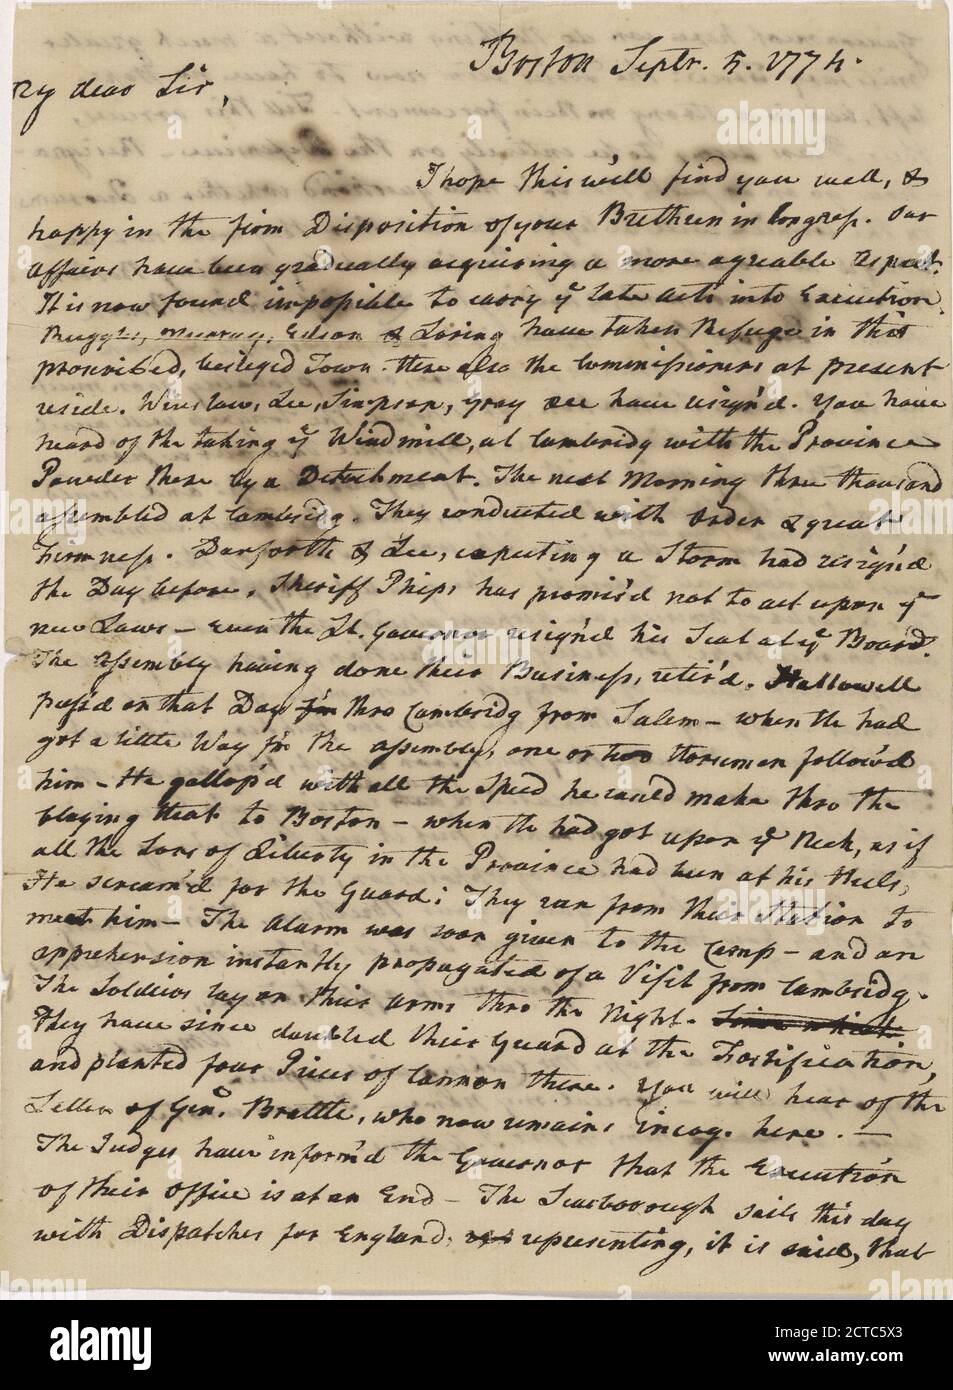 Boston Septr. 5. 1774.
My dear Sir,
I hope this will find you well, &
happy in the firm Disposition of your Brethren in Congress. Our
Affairs have been gradually acquiring a more agreable Aspect.
It is now found impossible to carry ye late Acts into Execution.
Ruggles, Murray, Edson & Loring have taken Refuge in this
proscribed, besieged Town. there also the Commissioners at present
reside. Winslow, Lee, Simpson, Gray &c have resign'd. You have
heard of the taking ye Windmill, at Cambridg with the Province
Powder there by a Detachment. The next Morning three thousand
assembled at Cambridg. They conducted with Order & great
Firmness. Danforth & Lee, expecting a Storm had resign'd
the Day before. Sheriff Phips has promis'd not to act upon ye
new Laws – Even the Lt. Governor resign'd his Seat at ye Board.
The Assembly having done their Business, retir'd. Hallowell
pass'd on that Day thro Cambridg from Salem – when He had
got a little Way fm the Assembly, one or two Horsemen follow'd
him – He gallop'd with all the Speed he could make thro the
blazing Heat to Boston – when He had got upon ye Neck, as if
all the Sons of Liberty in the Province had been at his Heels,
He scream'd for the Guard: They ran from their Station to
meet him – The Alarm was soon given to the Camp – and an
apprehension instantly propagated of a Visit from Cambridg.
The Soldiers lay on their arms thro the Night. Since which
They have since doubled their Guard at the Fortification,
and planted four Pieces of Cannon there. You will hear of the
Letter of Genl. Brattle, who now remains incog. here. –
The Judges have inform'd the Governor that the Execution
of their Office is at an End – The Scarborough sails this day
with Dispatches for England, representing, it is said, that
alamy
Image ID: 2CTC5X3
www.alamy.com